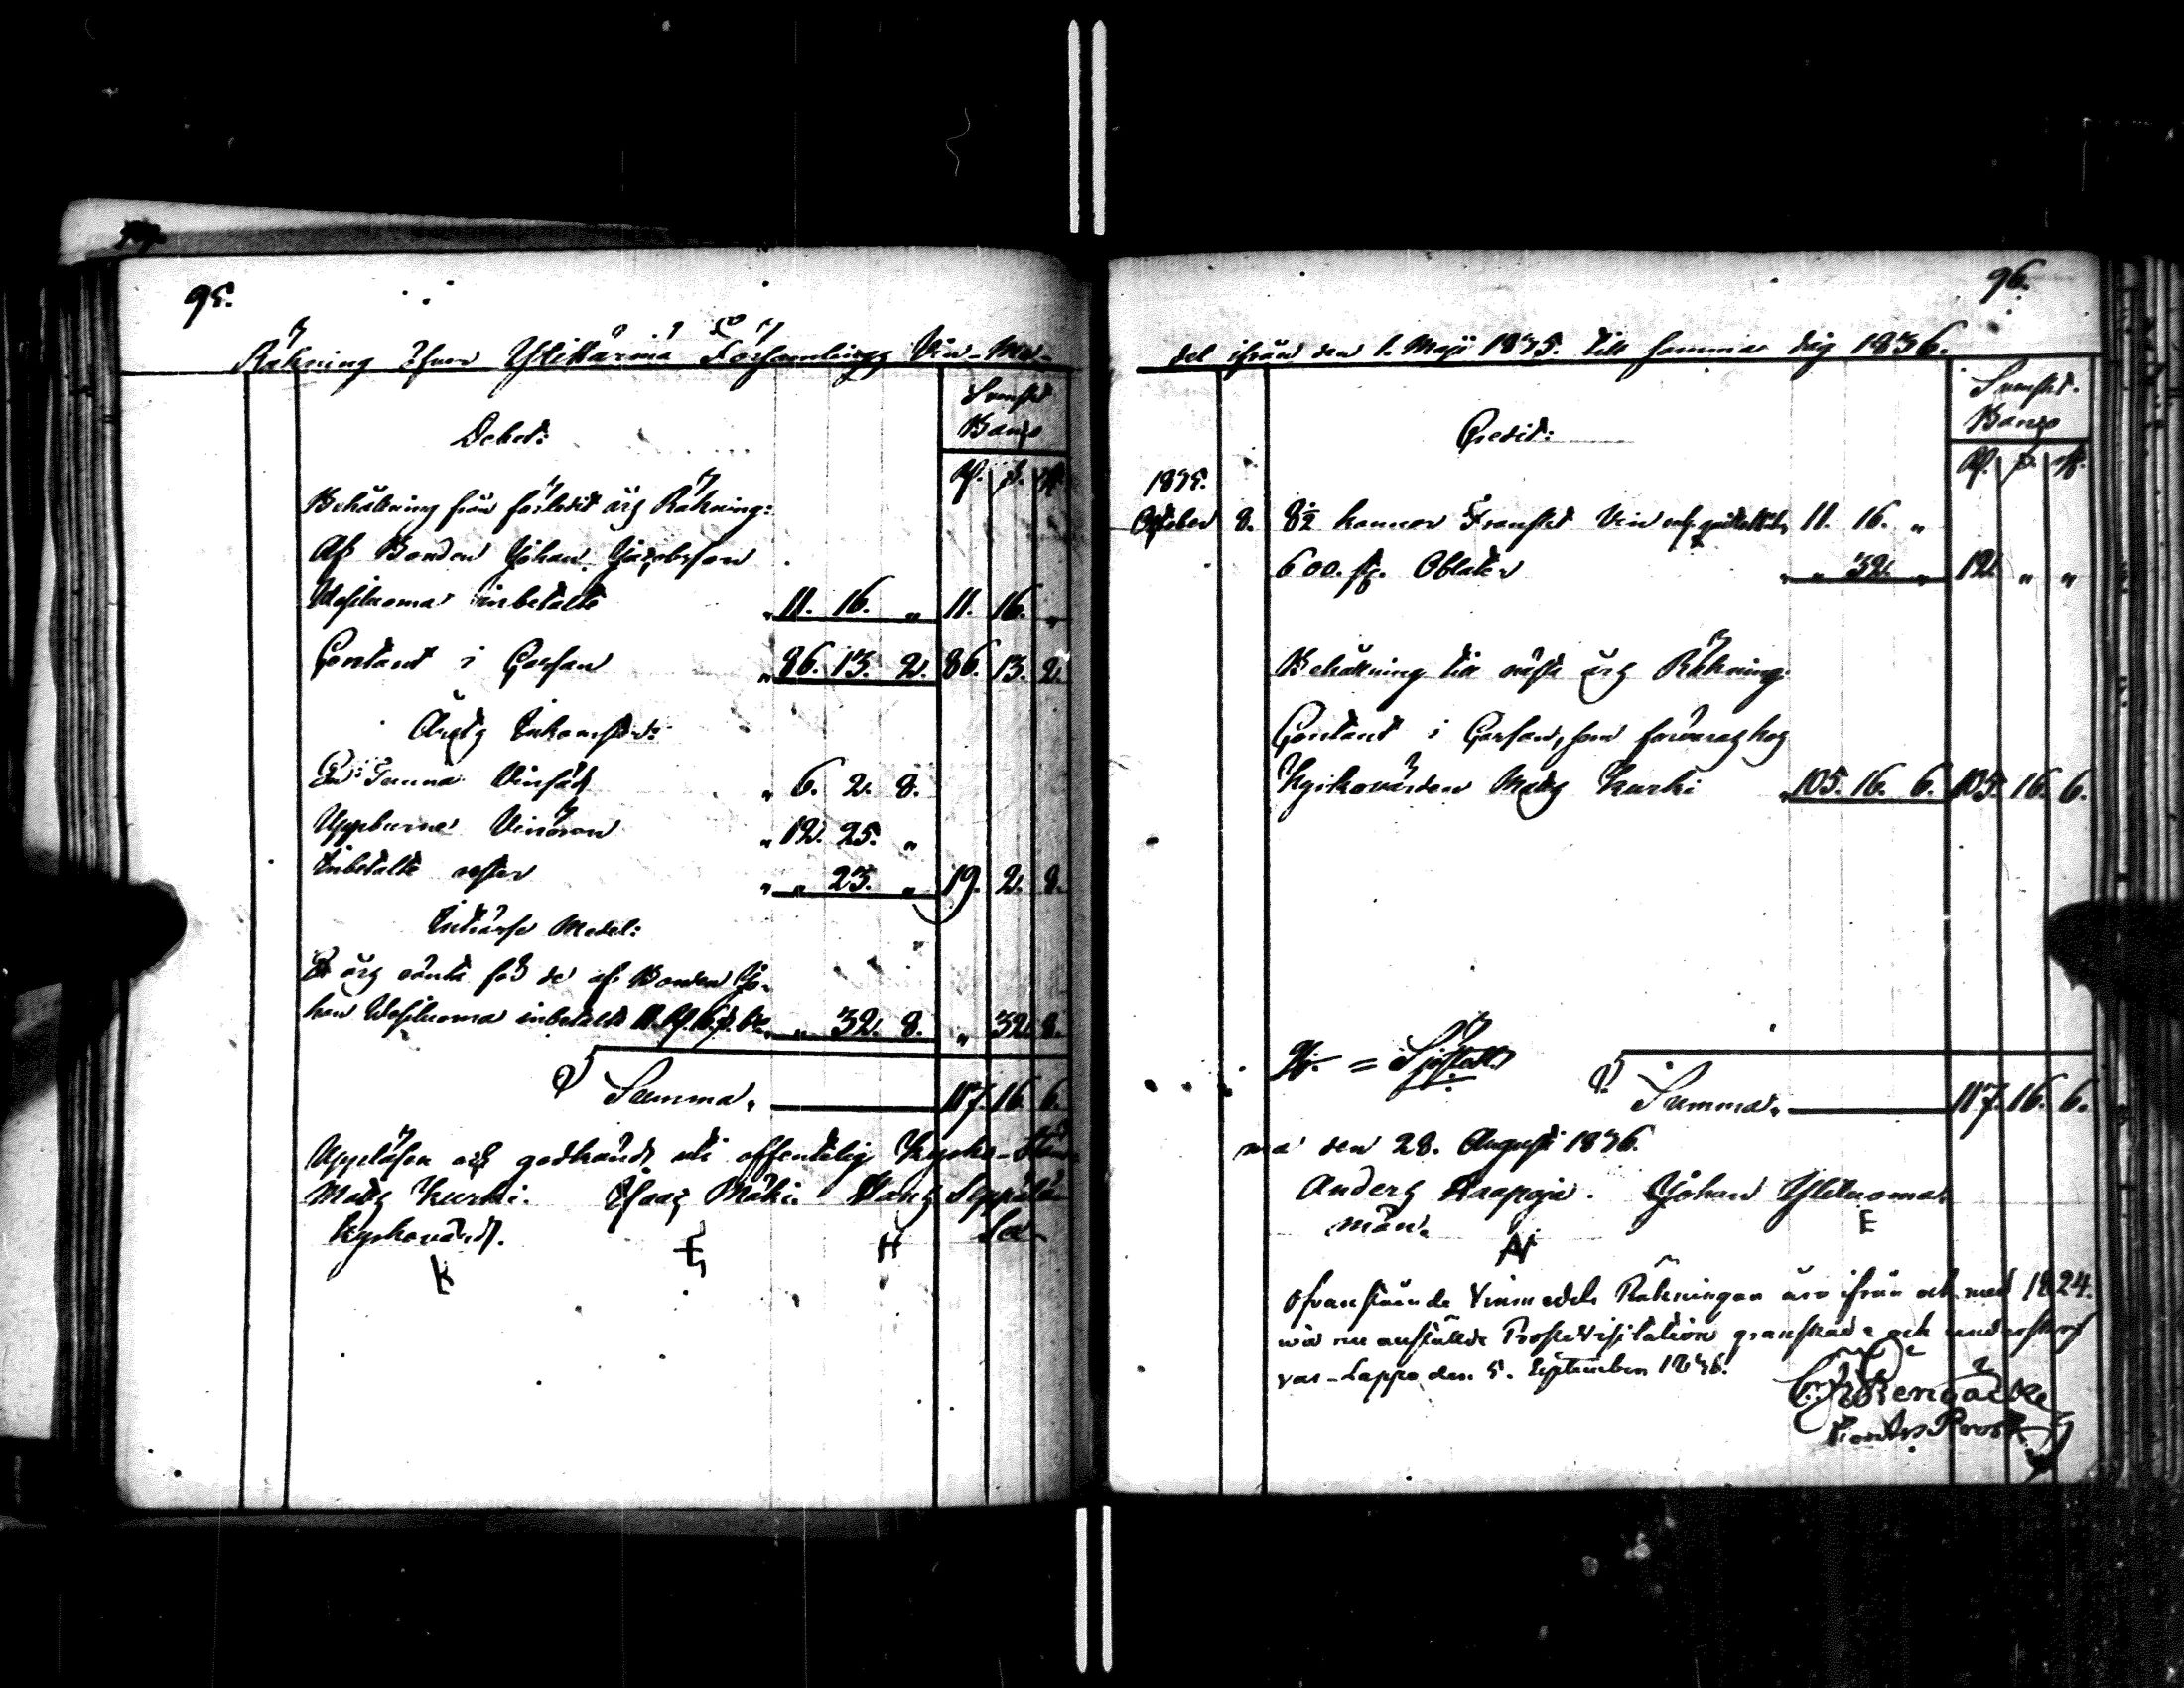 95.
Räkning öfver Ylikärmä Församlings Vin-Me-
Debet:
Svenskt
Banco
Behållning från förledit års Räkning:
Af Bonden Johan Jacobsson
inbetalte " 11. 16. " 11. 16. "
Contant i Cassan " 86. 13. 2. 86. 13. 2.
Årets Inkomster:
En Tunna Vinsäd " 6. 2. 8.
Uppburne Vinören " 12. 25. "
Inbetalte rester " " 23. " 19. 2. 8.
Intresse Medel:
Ett års ränta för de af Bonden Jo-
han inbetalte 11. 16. " " 32. 8. " 32. 8.
Summa. 117. 16. 6.
Uppläsen och godkänd uti offentelig Kyrko-Stäm-
Matts Kurki. Isaac Mäki. Hans Seppälä
Kyrkovärd. Sex-
K H
96.
del ifrån den 1. Maji 1835. till samma dag 1836.
Credit:
Svenskt.
Banco
1835.
October 8. 8½ kannor Franskt Vin 11. 16. "
600. st. Oblater " " 32. " 12. " "
Behållning till nästa års Räkning:
Contant i Cassan, som förvaras hos
Kyrkovärden Matts Kurki " 105. 16. 6. 105. 16. 6.
Summa. 117. 16. 6.
ma den 28. Augusti 1836.
Anders Haapoja. Johan Ylituoma.
män. E
Ofvanstående Vinmedels Räkningar äro ifrån och med 1824.
wid nu anstälde Prosteivisitation granskade och underskrif
vas - Lappo den 5. September 1836.
Contr. Prost